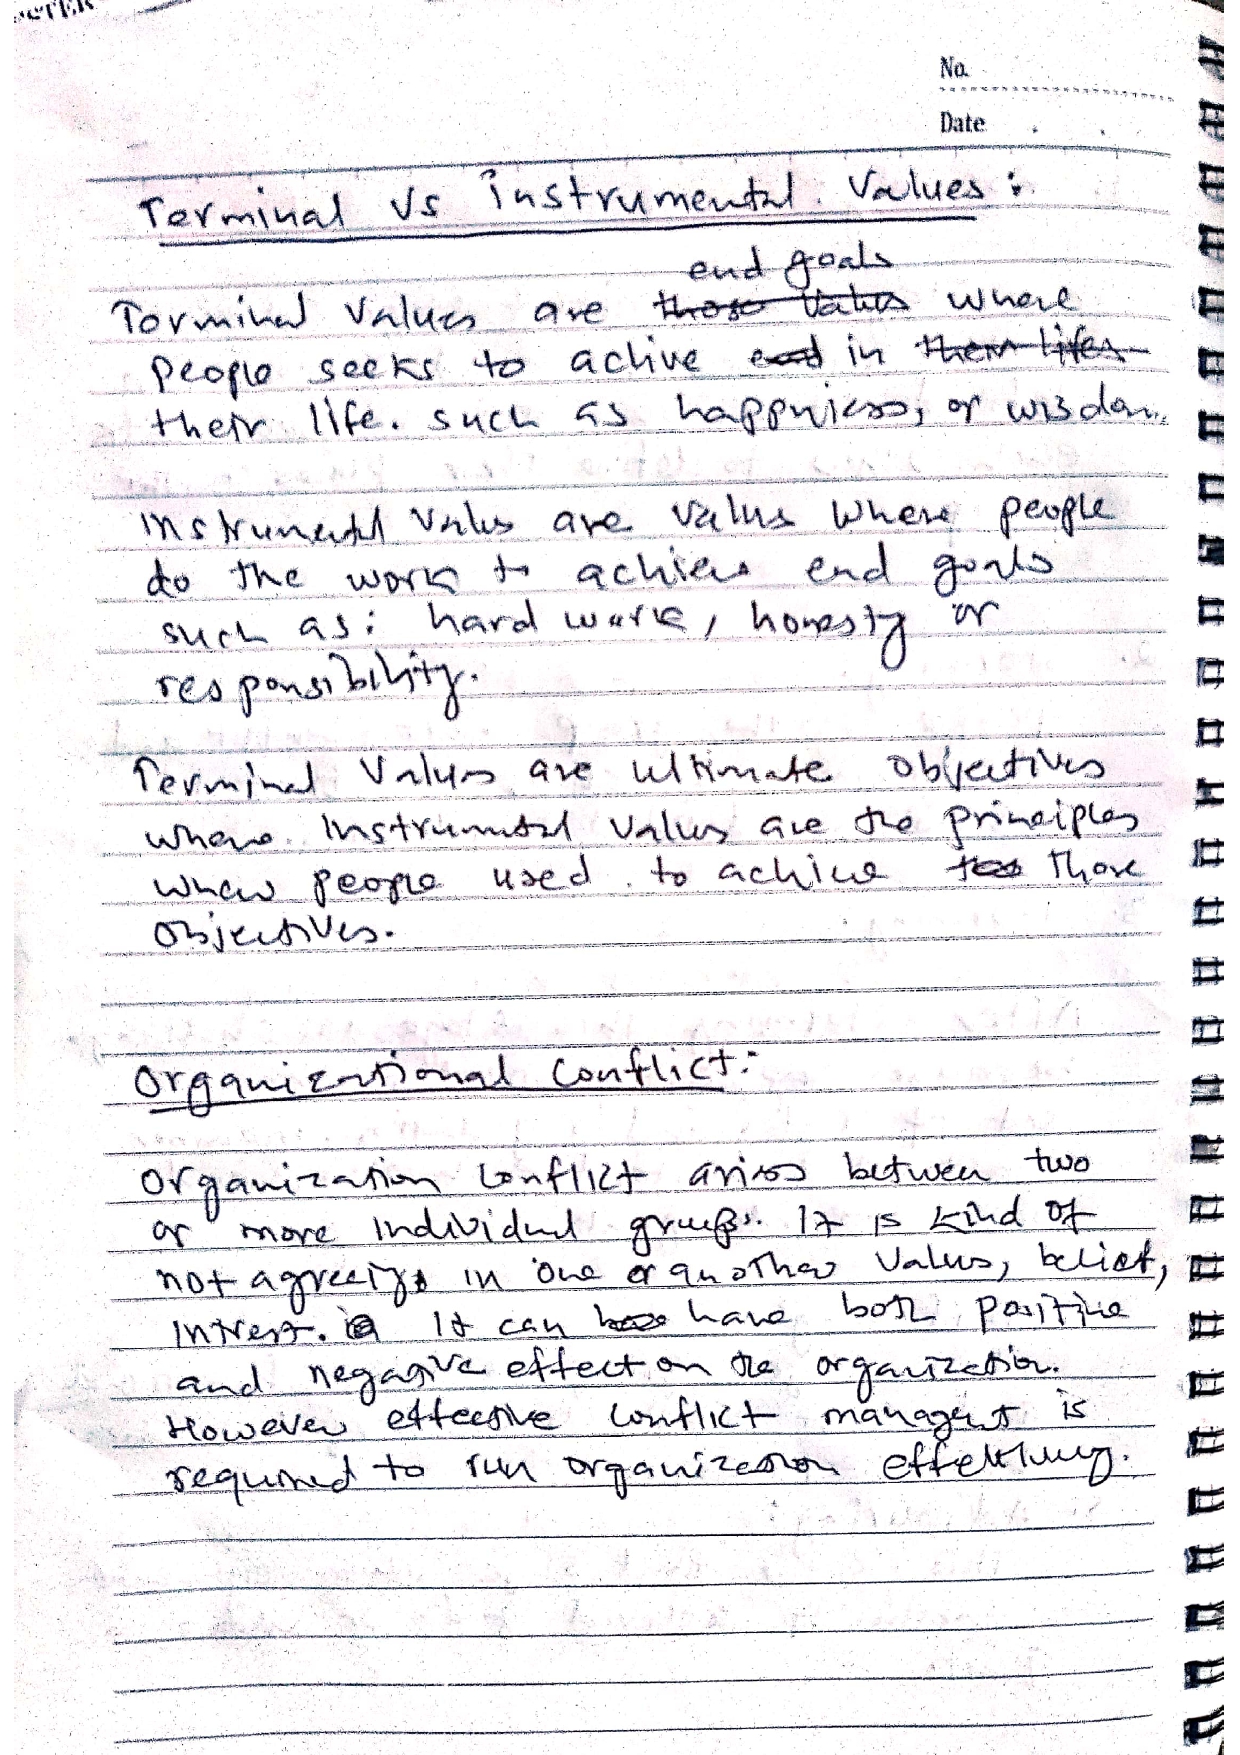 No.
Date
Terminal vs instrumental values :
end goals
Terminal values are those values where
people seeks to achive end in them lifes
their life. such as happniess, or wisdom.
Instrumental values are values where people
do the work to achieve end goals
such as: hard work, honesty or
responsibility.
Terminal values are ultimate objectives
where instrumental values are the principles
where people used to achive those
objectives.
Organizational Conflict:
Organization conflict arises between two
or more individual groups. It is kind of
not agreeing in one or another values, belief,
intrest. It can have both positive
and negative effect on the organization.
However effective conflict managent is
required to run organization effectively.